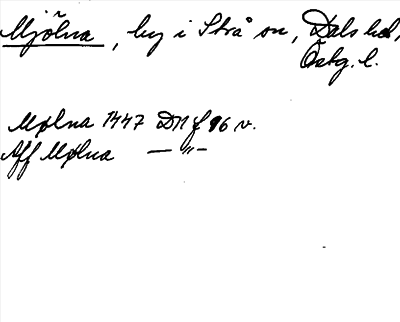 Mjölna, by i Strå sn, Dals hd,
Östg. l.
Mølna 1447 DN f 96 v.
Aff Mølna — " —